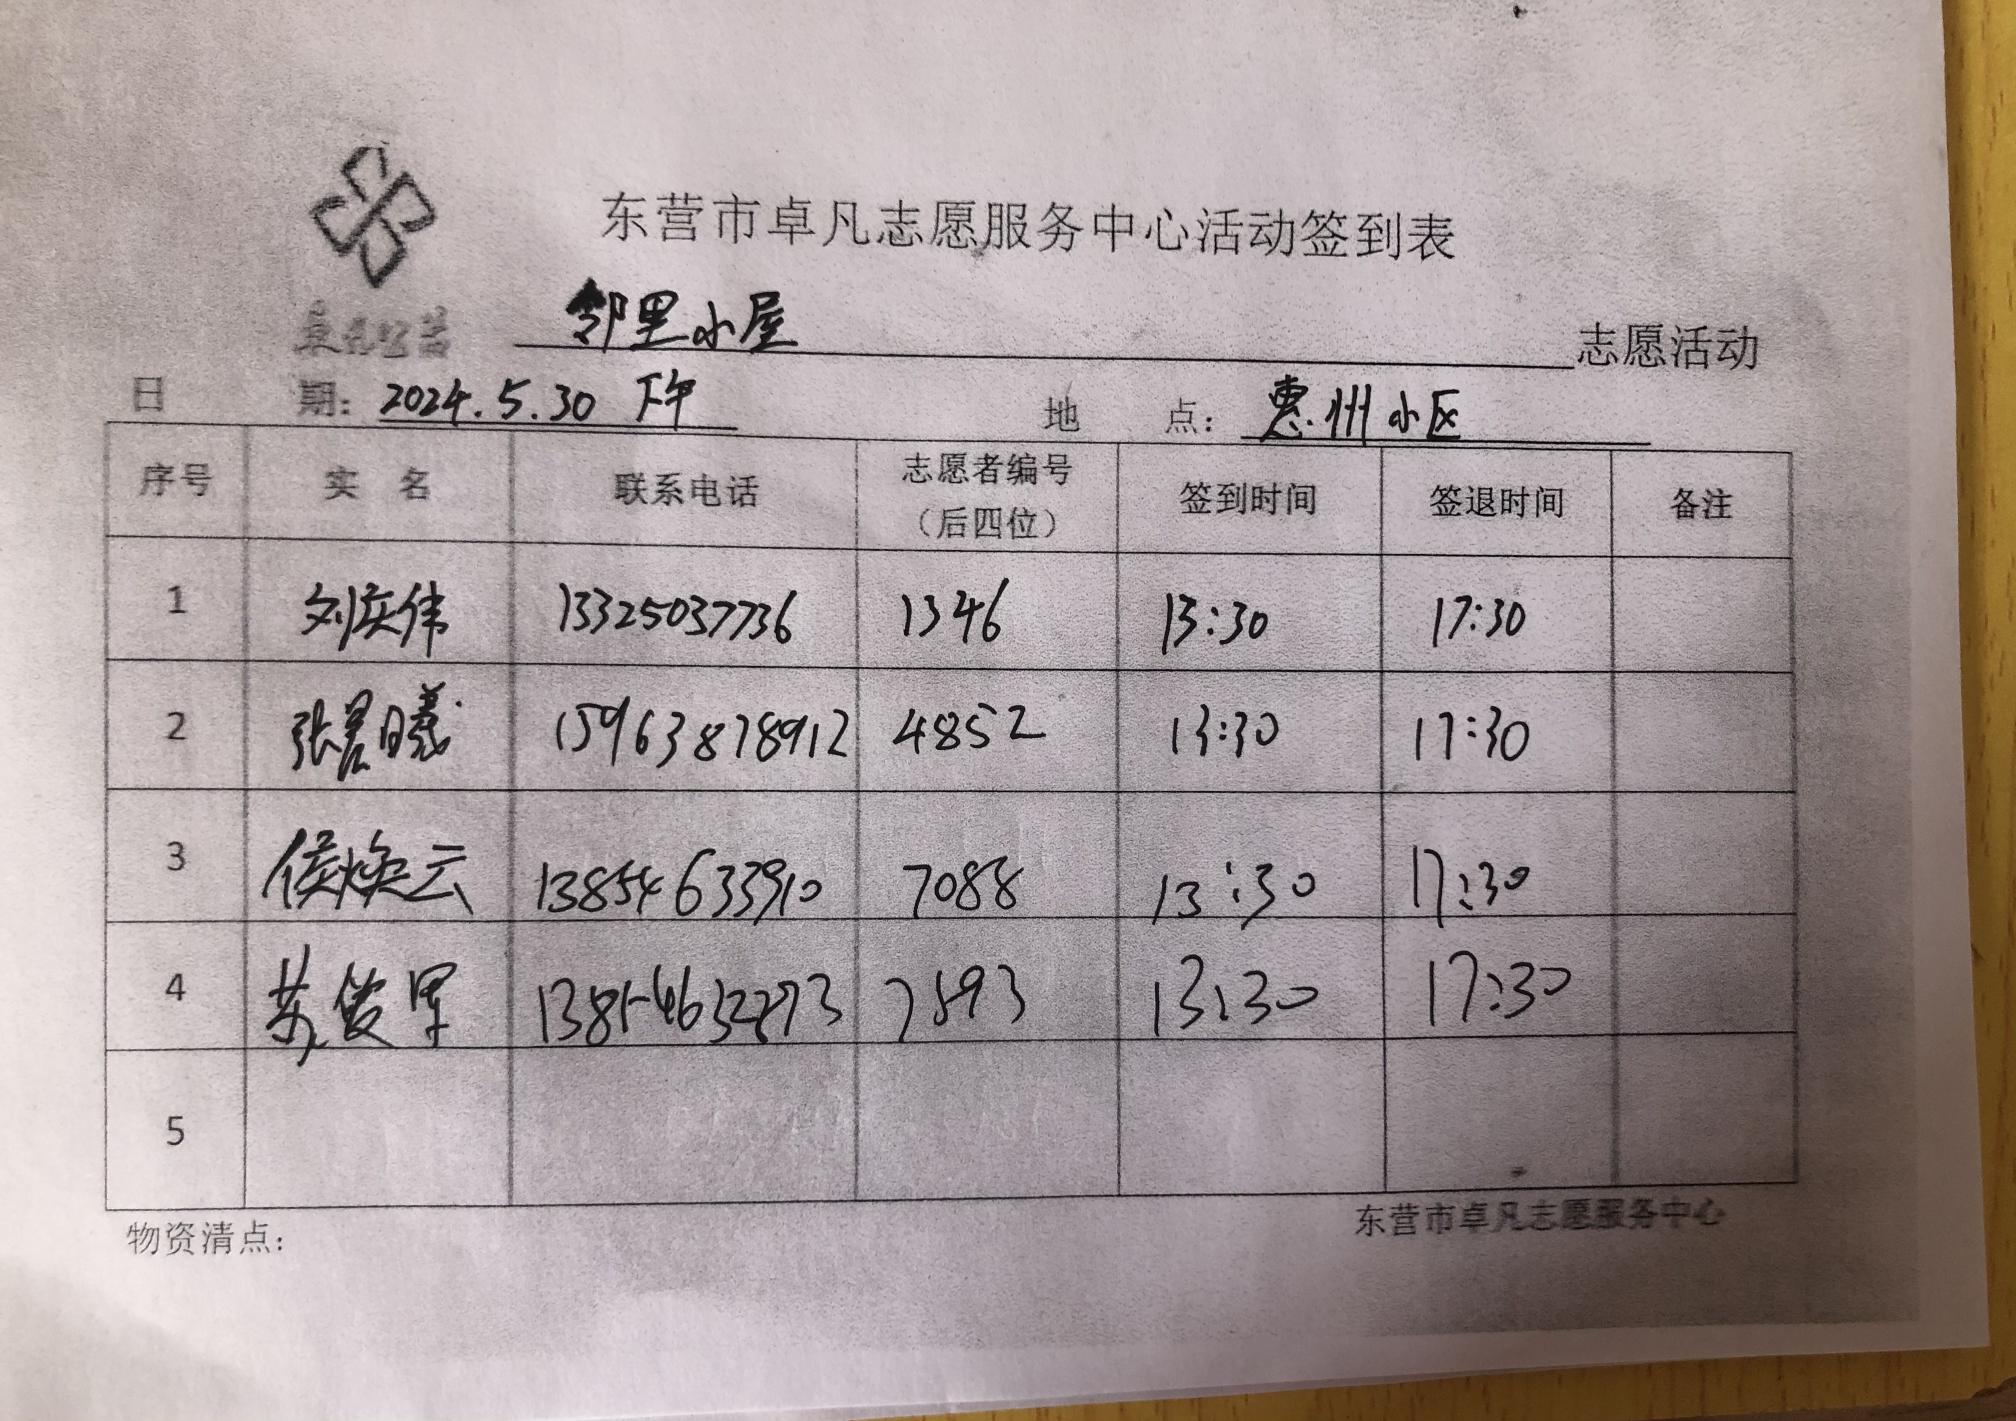 东营市卓凡志愿服务中心活动签到表
卓凡公益
邻里小屋 志愿活动
日 期: 2024.5.30 下午 地 点: 惠州小区
序号 实 名 联系电话 志愿者编号（后四位） 签到时间 签退时间 备注
1 刘奕伟 13325037736 1346 13:30 17:30
2 张君曦 15963878912 4852 13:30 17:30
3 侯焕云 13854633910 7088 13:30 17:30
4 苏俊军 13854632273 7593 13:30 17:30
5
物资清点:
东营市卓凡志愿服务中心